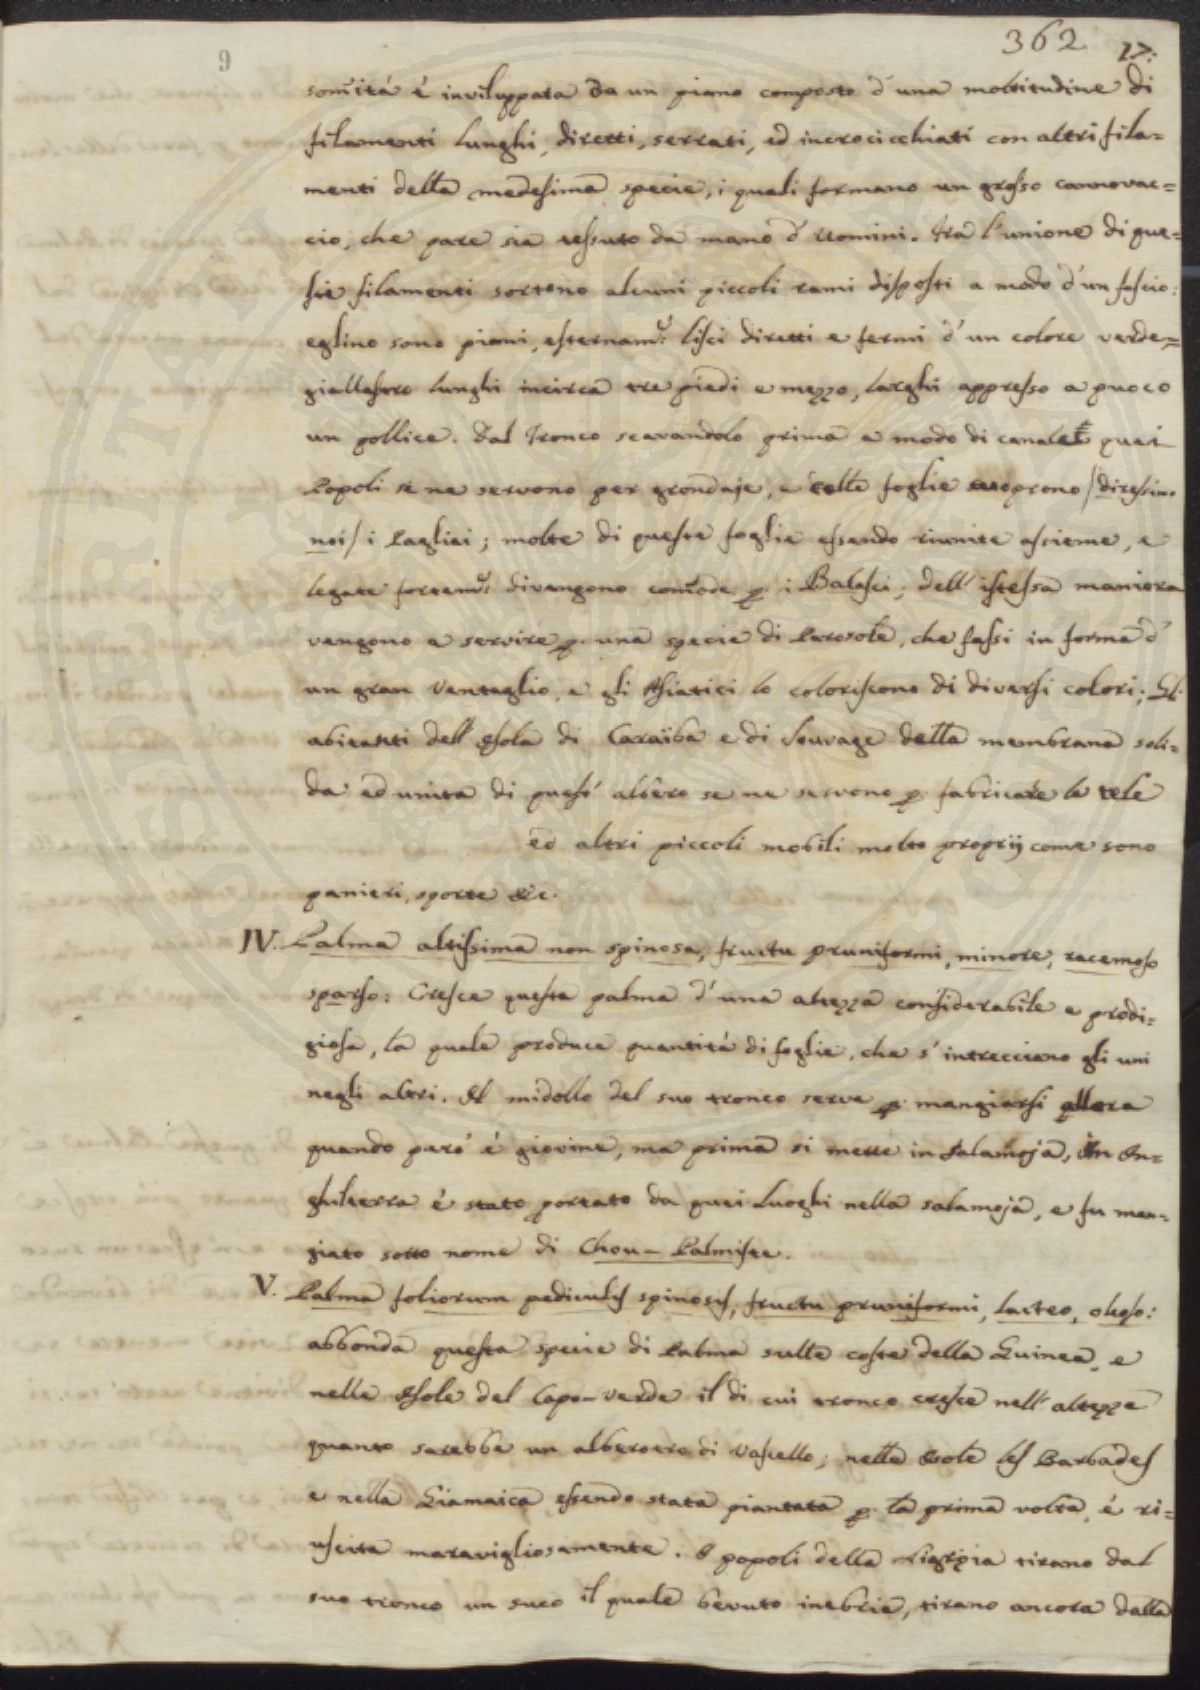 9
362 17:
som̃ità è inviluppata da un piano composto d'una moltitudine di
filamenti lunghi, diretti, serrati, ed incrocicchiati con altri fila=
menti della medesima specie, i quali formano un grosso cannovac=
cio, che pare sia tessuto da mano d'Uomini. Tra l'unione di que=
sti filamenti sortono alcuni piccoli rami disposti a modo d'un fascio:
eglino sono piani, esternam.e lisci diretti e fermi d'un colore verde=
giallastro lunghi incirca tre piedi e mezzo, larghi appresso a puoco
un pollice. Dal Tronco scavandolo prima a modo di canale quei
Popoli se ne servono per grondaje, e colle foglie cuoprono /diressimo
noi/ i Pagliai; molte di queste foglie essendo riunite assieme, e
legate fortem.e divengono com̃ode p. i Balasci; dell'istessa maniera
vengono a servire p. una specie di Parosole, che fassi in forma d'
un gran Ventaglio, e gli Asiatici lo coloriscono di diversi colori; Gl'
abitanti dell'Isola di Caraïba e di Sauvage della membrana soli=
da ed unita di quest'albero se ne servono p. fabricare le tele
ed altri piccoli mobili molto proprij come sono
panieri, sporte &c.
IV. Palma altissima non spinosa, fructu pruniformi, minore, racemoso
sparso: Cresce questa palma d'una altezza considerabile e prodi=
giosa, la quale produce quantità di foglie, che s'intrecciano gli uni
negli altri. Il midollo del suo tronco serve p. mangiarsi allora
quando però è giovine, ma prima si mette in salamoja, in In=
ghilterra è stato portato da quei Luoghi nella salamoja, e fu man=
giato sotto nome di Chou-Palmiste.
V. Palma foliorum pediculis spinosis, fructu pruniformi, lacteo, oleoso:
abbonda questa specie di Palma sulle coste della Guinea, e
nelle Isole del Capo-verde il di cui tronco cresce nell'altezza
quanto sarebbe un albero di Vascello; nelle Isole les Barbades
e nella Giamaica essendo stata piantata p. la prima volta, è ri=
uscita maravigliosamente. I popoli della tirano dal
suo tronco un suco il quale bevuto inebria, tirano ancora dalla